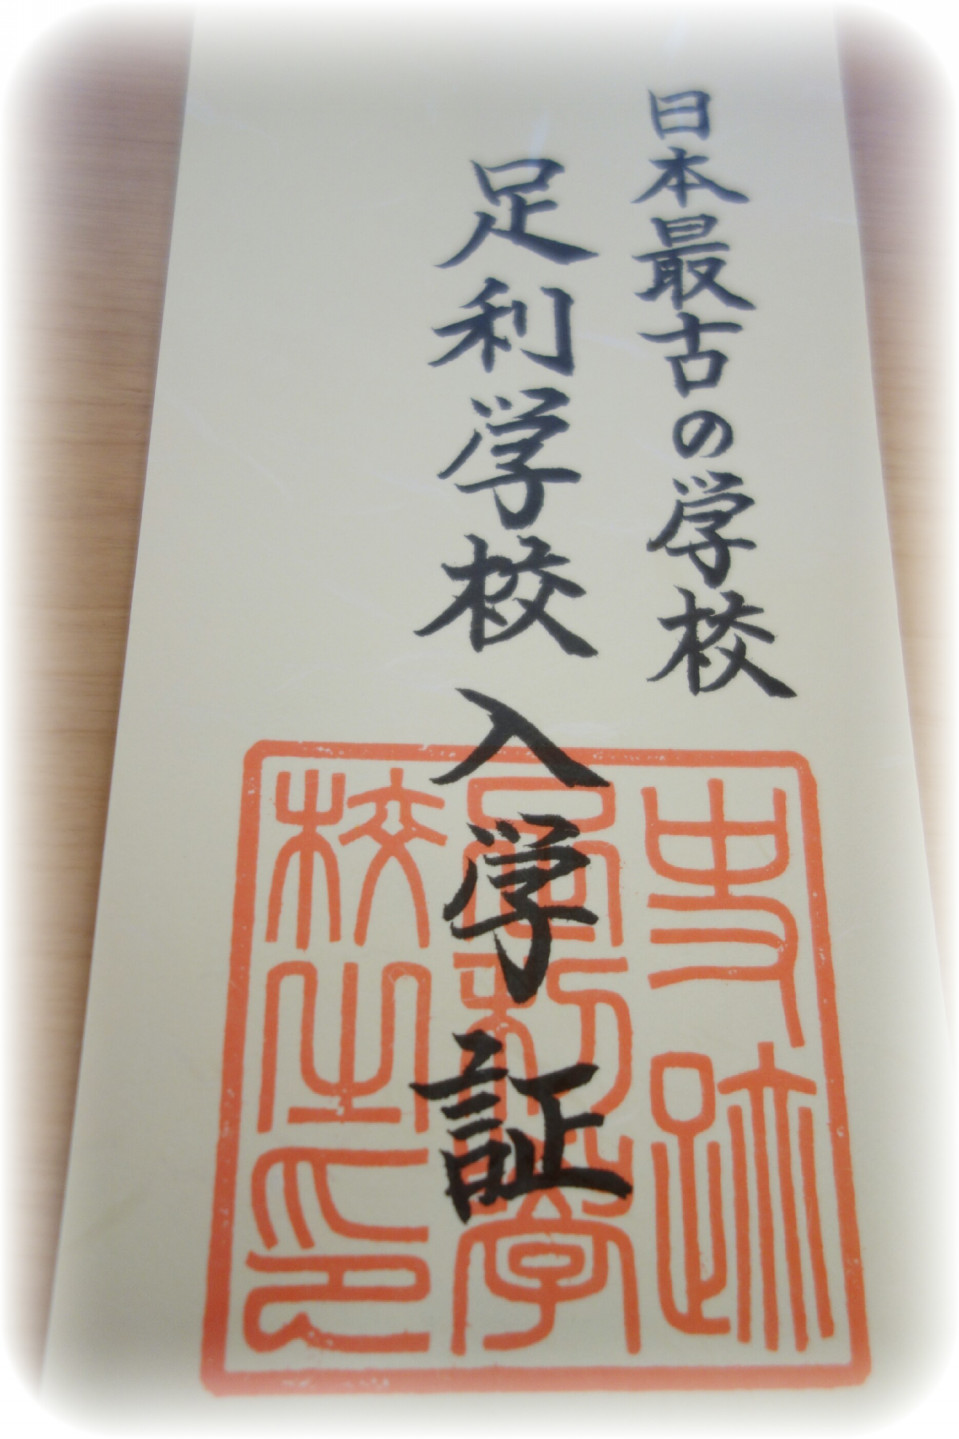 日本最古の学校
足利学校入学証
史跡
足利学
校之印